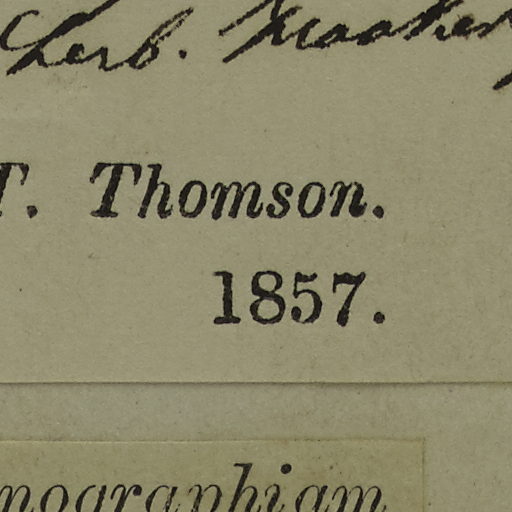 Herb. Hookeri
T. Thomson.
1857.
nographiam